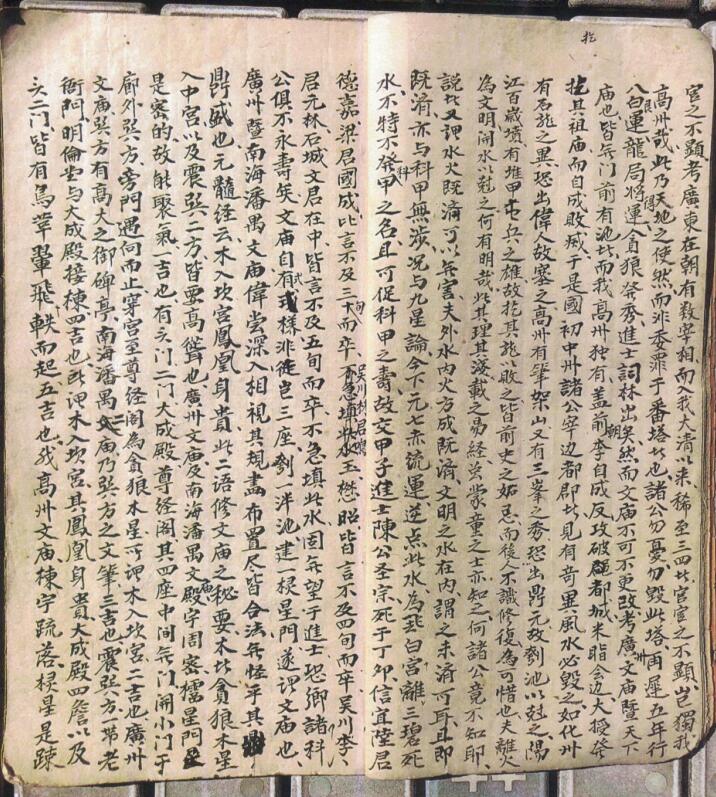 扵
官之不顯考廣東在朝有数宰相而入我大清以来稀至三四此官宦之不顯豈獨我
高州哉此乃天地之使然而非委罪于番塔也諸公勿憂勿毁此塔再遲五年行
八白艮運龍局將得運貪狼發秀進士詞林出矣然而文庙不可不更改考廣州文庙暨天下
庙也皆無门前有池此而我高州独有盖前朝李自成反攻破都城米脂令边大授發
挖其祖庙而自成敗滅于是國初中州諸公宰边都郡此見有奇異風水必毁之如化州
有石龍之異恐出偉人故塞之高州有筆架山又有三峯之秀恐出鼎元故劉池以尅之陽
江百歲墳有堆甲屯兵之雄故挖其龍以敗之皆前史之妬忌而後人不識修復為可惜也夫離火
為文明開水以尅之何有明哉此其理其淺載之易經並蒙童之士亦知之何諸公竟不知耶
説此又谓水火既濟可以無害夫外水内火方成既濟文明之水在内謂之未濟可耳且即
既濟亦与科甲無涉况与九星論今下元七赤硫運逆点此水為五白宫離三碧死
水不特不發科甲之名且可促科甲之壽故交甲子進士陳公圣宗死于丁卯信宜陸君
德嘉梁君國成此言不及三十而卒吴川林君鳴玉懋昭皆言不及四旬而卒吴川李
君元林石城文君在中皆言不及五旬而卒不急填此水固無望于進士恐鄉諸科
公俱不永壽矣文庙自有式様非徒岂三座劉一泮池建一棂星門遂谓文庙也
廣州暨南海潘禺文庙偉尝深入相視其規畫布置尽皆合法無怪乎其
鼎盛也元髓经云木入坎宫鳳凰身貴此二语修文庙之秘要木此貪狼木星
入中宫以及震巽二方皆要高聳也廣州文庙及南海潘禺文庙殿宇周密櫺星門
是密的故能聚氣一吉也有头门二门大成殿尊经阁其四座中间無门開小门于
廊外巽方旁門遇向而止穿宫至尊经阁為貪狼木星可谓木入坎宫二吉也廣州
文庙巽方有高大之御碑亭南海潘禺二文庙乃巽方之文筆三吉也震巽方一帶老
衙門明倫堂与大成殿接棟四吉也所谓木入坎宫其鳳凰身貴大成殿四簷以及
头二门皆有鳥革翬飛軼而起五吉也我高州文庙棟宇疏落棂星是踈